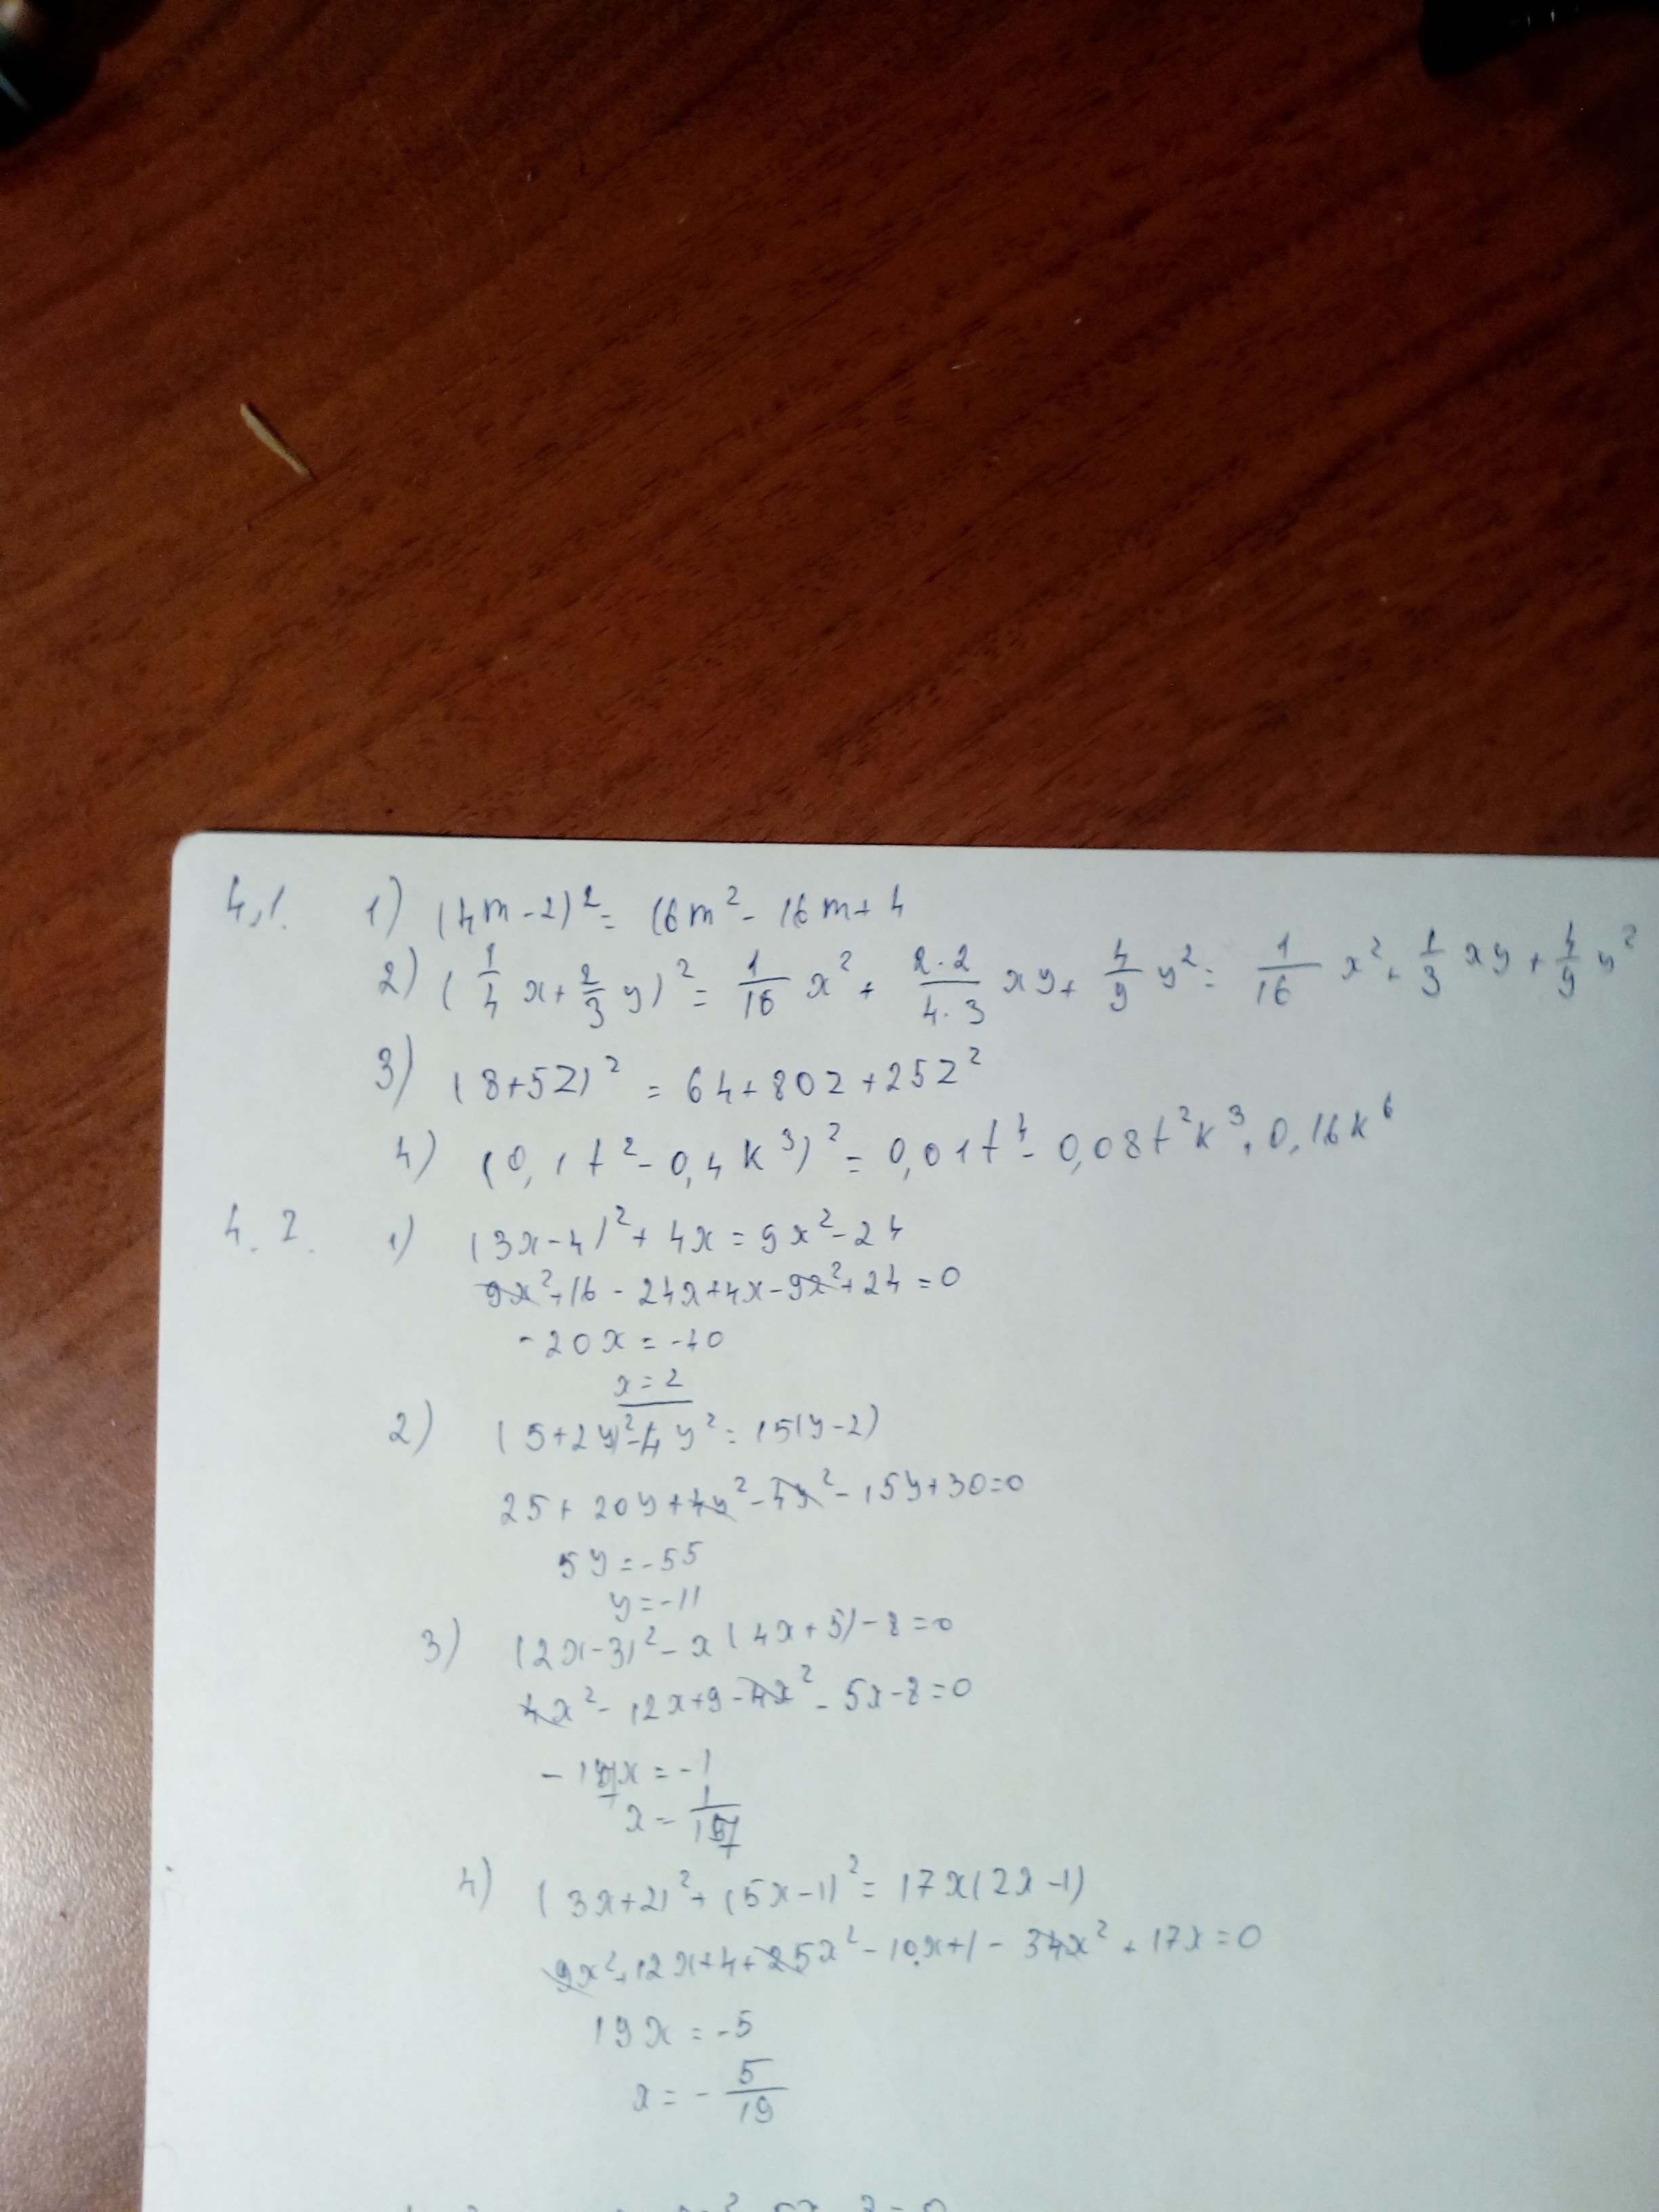 4.1. 1) (4m-2)² = 16m² - 16m + 4
2) (1/4 x + 2/3 y)² = 1/16 x² + 2·2/4·3 xy + 4/9 y² = 1/16 x² + 1/3 xy + 4/9 y²
3) (8+5z)² = 64+80z+25z²
4) (0,1t² - 0,4k³)² = 0,01t⁴ - 0,08t²k³ + 0,16k⁶
4.2. 1) (3x-4)² + 4x = 9x² - 24
9x² + 16 - 24x + 4x - 9x² + 24 = 0
-20x = -40
x = 2
2) (5+2y)² - 4y² = 15(y-2)
25 + 20y + 4y² - 4y² - 15y + 30 = 0
5y = -55
y = -11
3) (2x-3)² - x(4x+5) - 8 = 0
4x² - 12x + 9 - 4x² - 5x - 8 = 0
-17x = -1
x = 1/17
4) (3x+2)² + (5x-1)² = 17x(2x-1)
9x² + 12x + 4 + 25x² - 10x + 1 - 34x² + 17x = 0
19x = -5
x = - 5/19